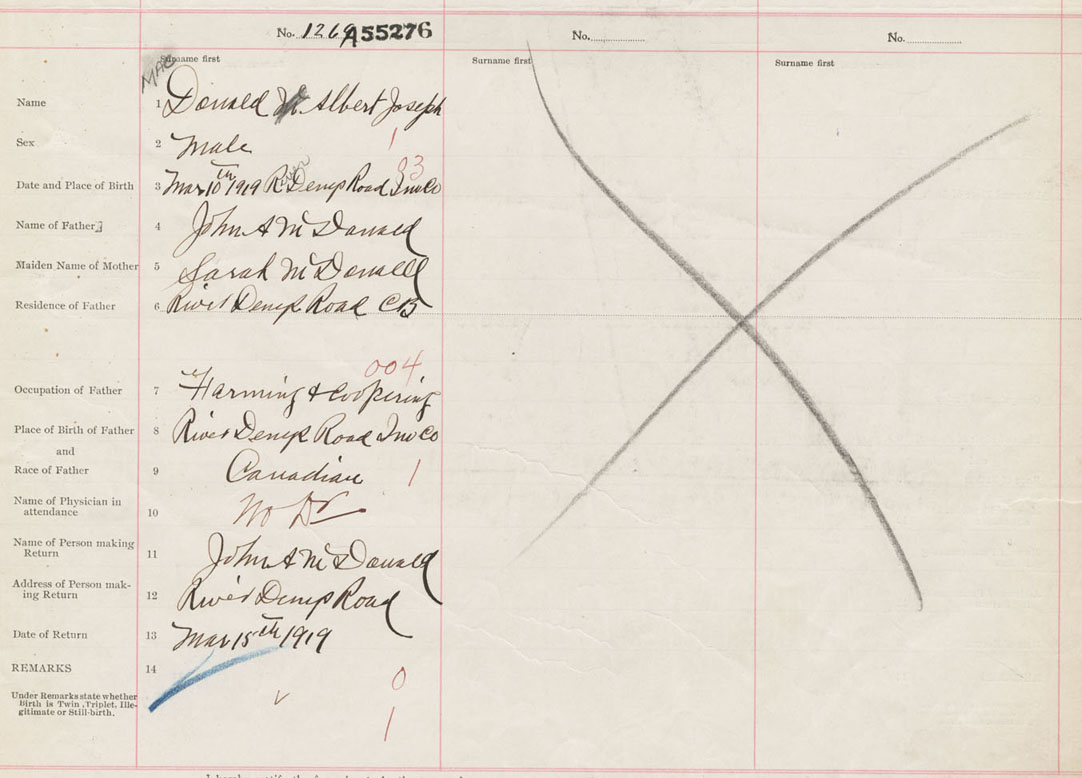 No. 1269 A55276 No. No.
Surname first Surname first Surname first
MAC
Name 1 Donald Albert Joseph
Sex 2 Male 1
River 93
Date and Place of Birth 3 Mar 10th 1919 R Denys Road Inv Co
Name of Father 4 John A McDonald
Maiden Name of Mother 5 Sarah McDonald
Residence of Father 6 River Denys Road CB
004
Occupation of Father 7 Farming & Coopering
Place of Birth of Father 8 River Denys Road Inv Co
and
Race of Father 9 Canadian 1
Name of Physician in
attendance 10 No Dr
Name of Person making
Return 11 John A McDonald
Address of Person mak-
ing Return 12 River Denys Road
Date of Return 13 Mar 15th 1919
REMARKS 14 0
Under Remarks state whether
Birth is Twin, Triplet, Ille-
gitimate or Still-birth. 1